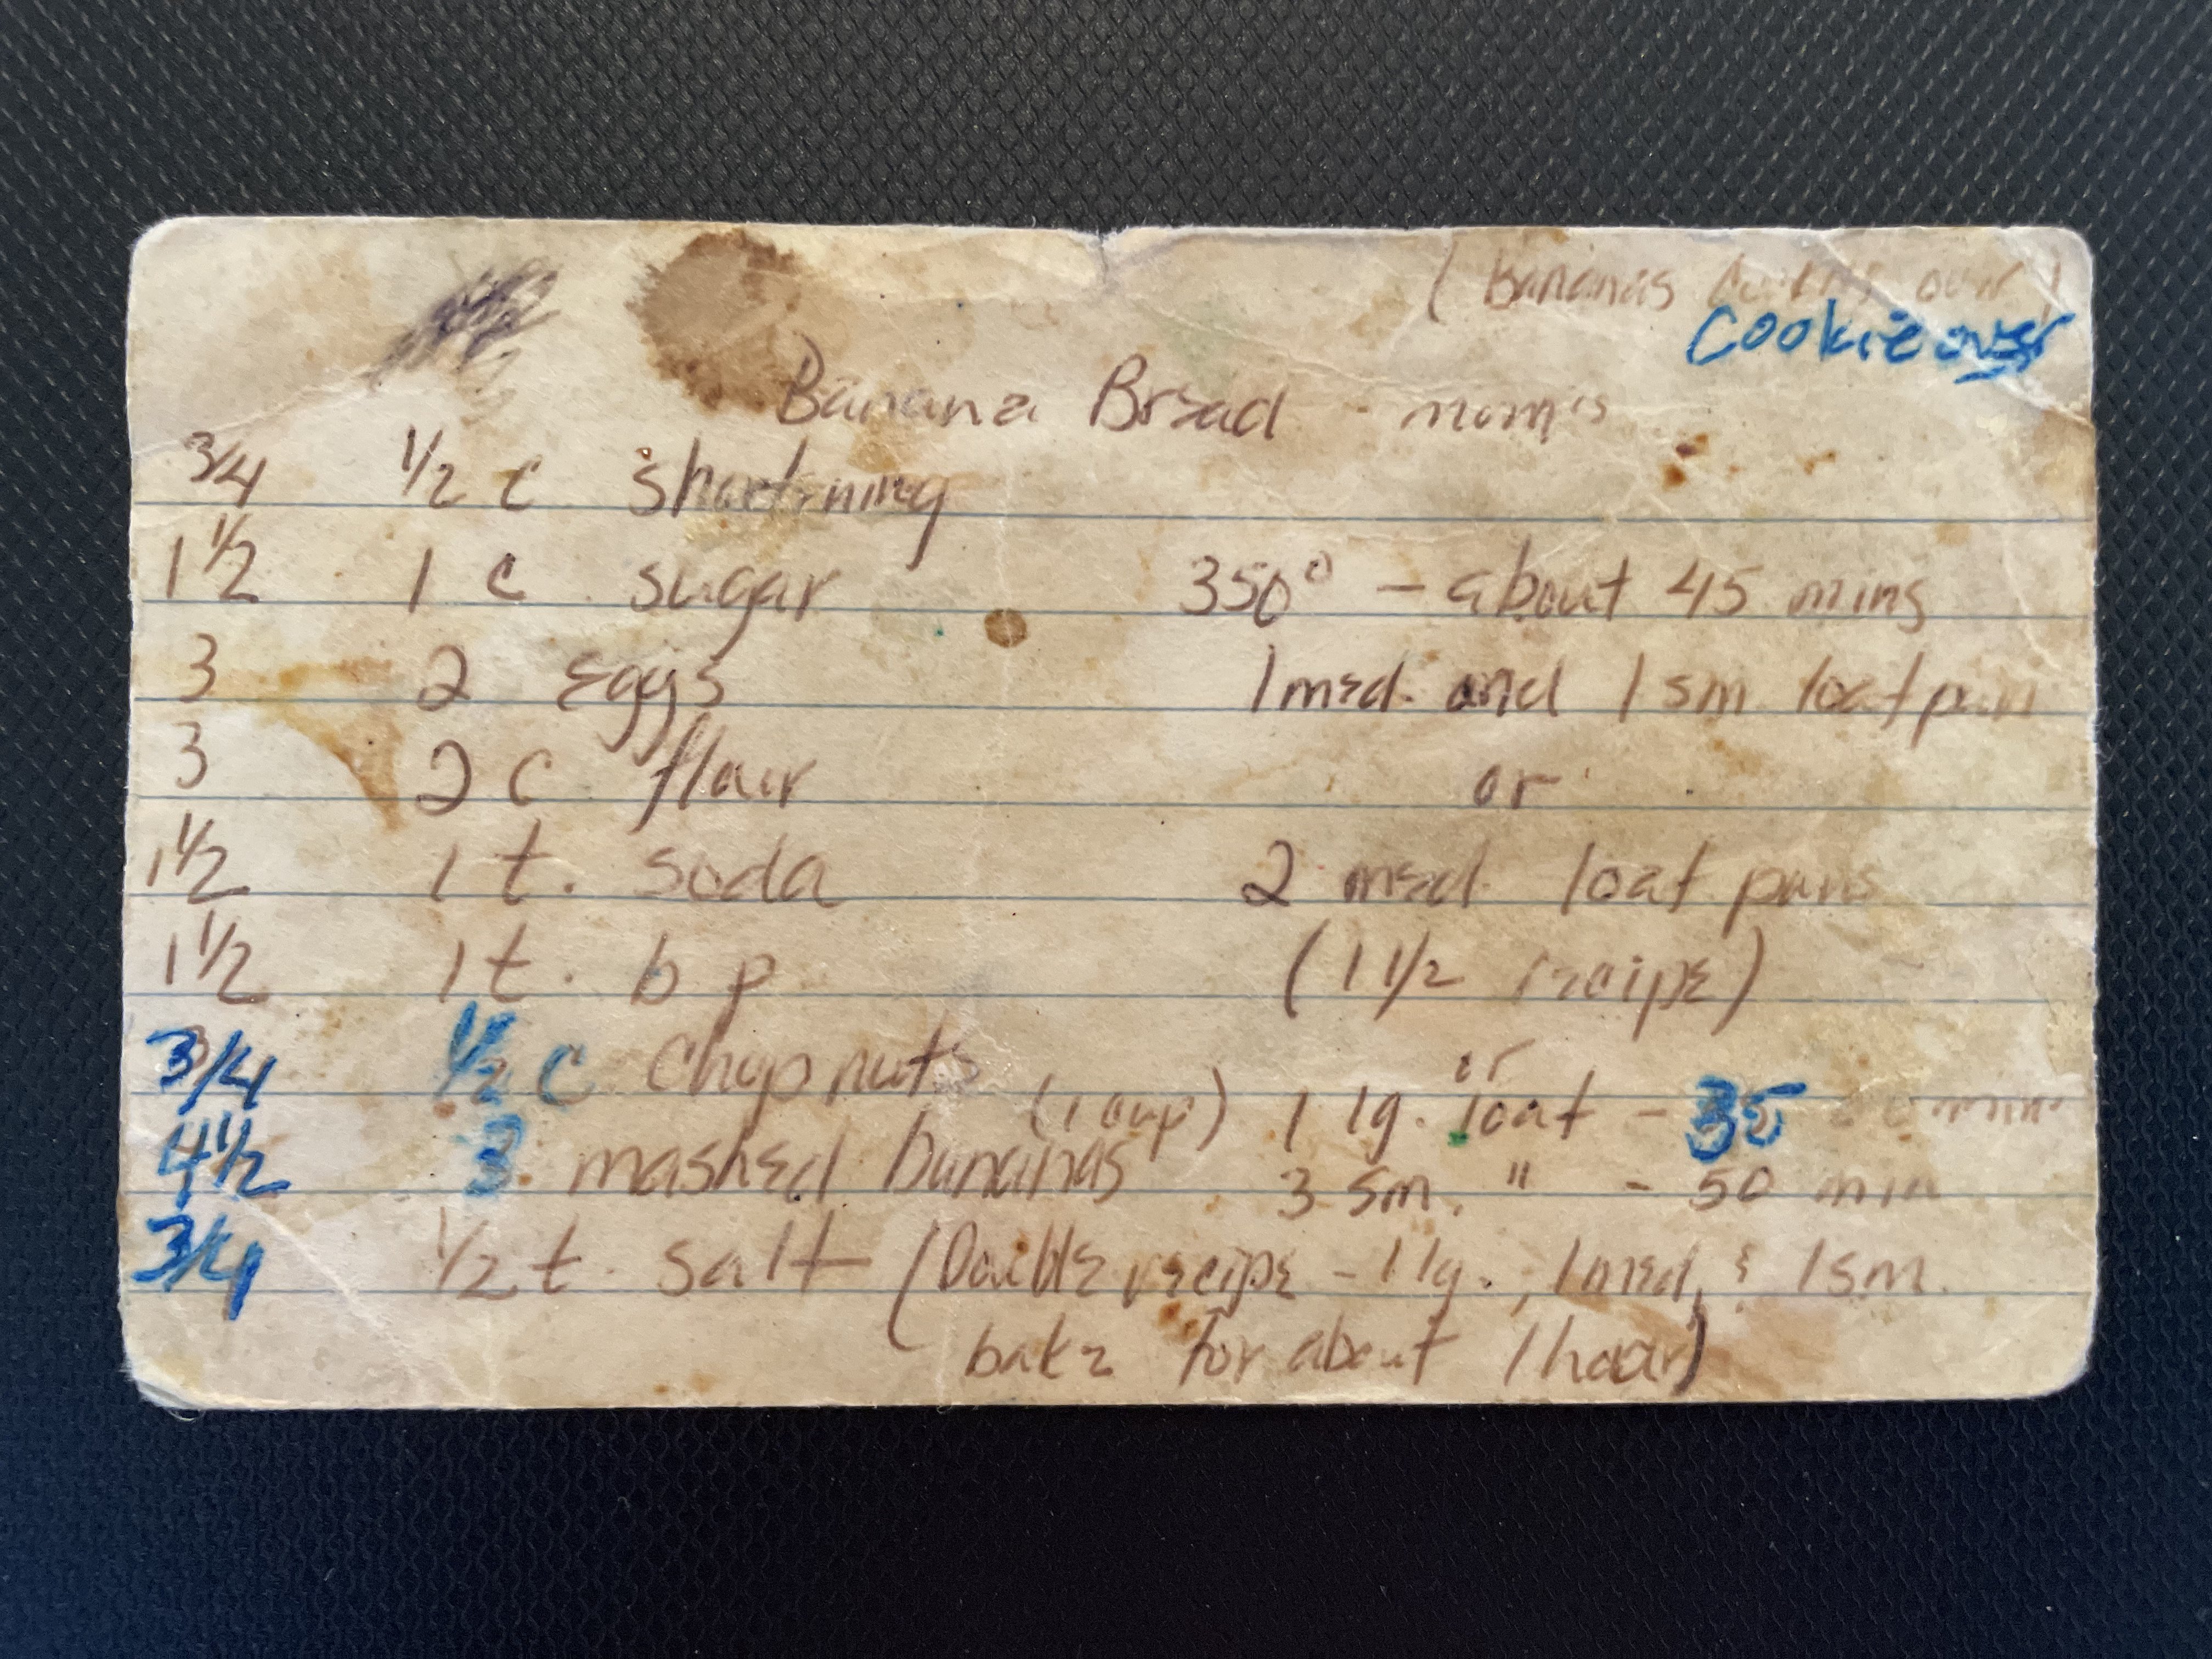 ( Bananas over )
Cookie over
Banana Bread - mom's
3/4 1/2 c shortning
1 1/2 1 c sugar 350° - about 45 mins
3 2 eggs 1 med. and 1 sm loaf pan
3 2 c flour or
1 1/2 1 t. soda 2 med. loaf pans
1 1/2 1 t. b p (1 1/2 recipe)
3/4 1/2 c chop nuts or
4 1/2 3 mashed bananas (1 cup) 1 lg. loaf - 35 min
3 sm. " - 50 min
3/4 1/2 t. salt (Double recipe - 1 lg., 1 med, & 1 sm.
bake for about 1 hour)